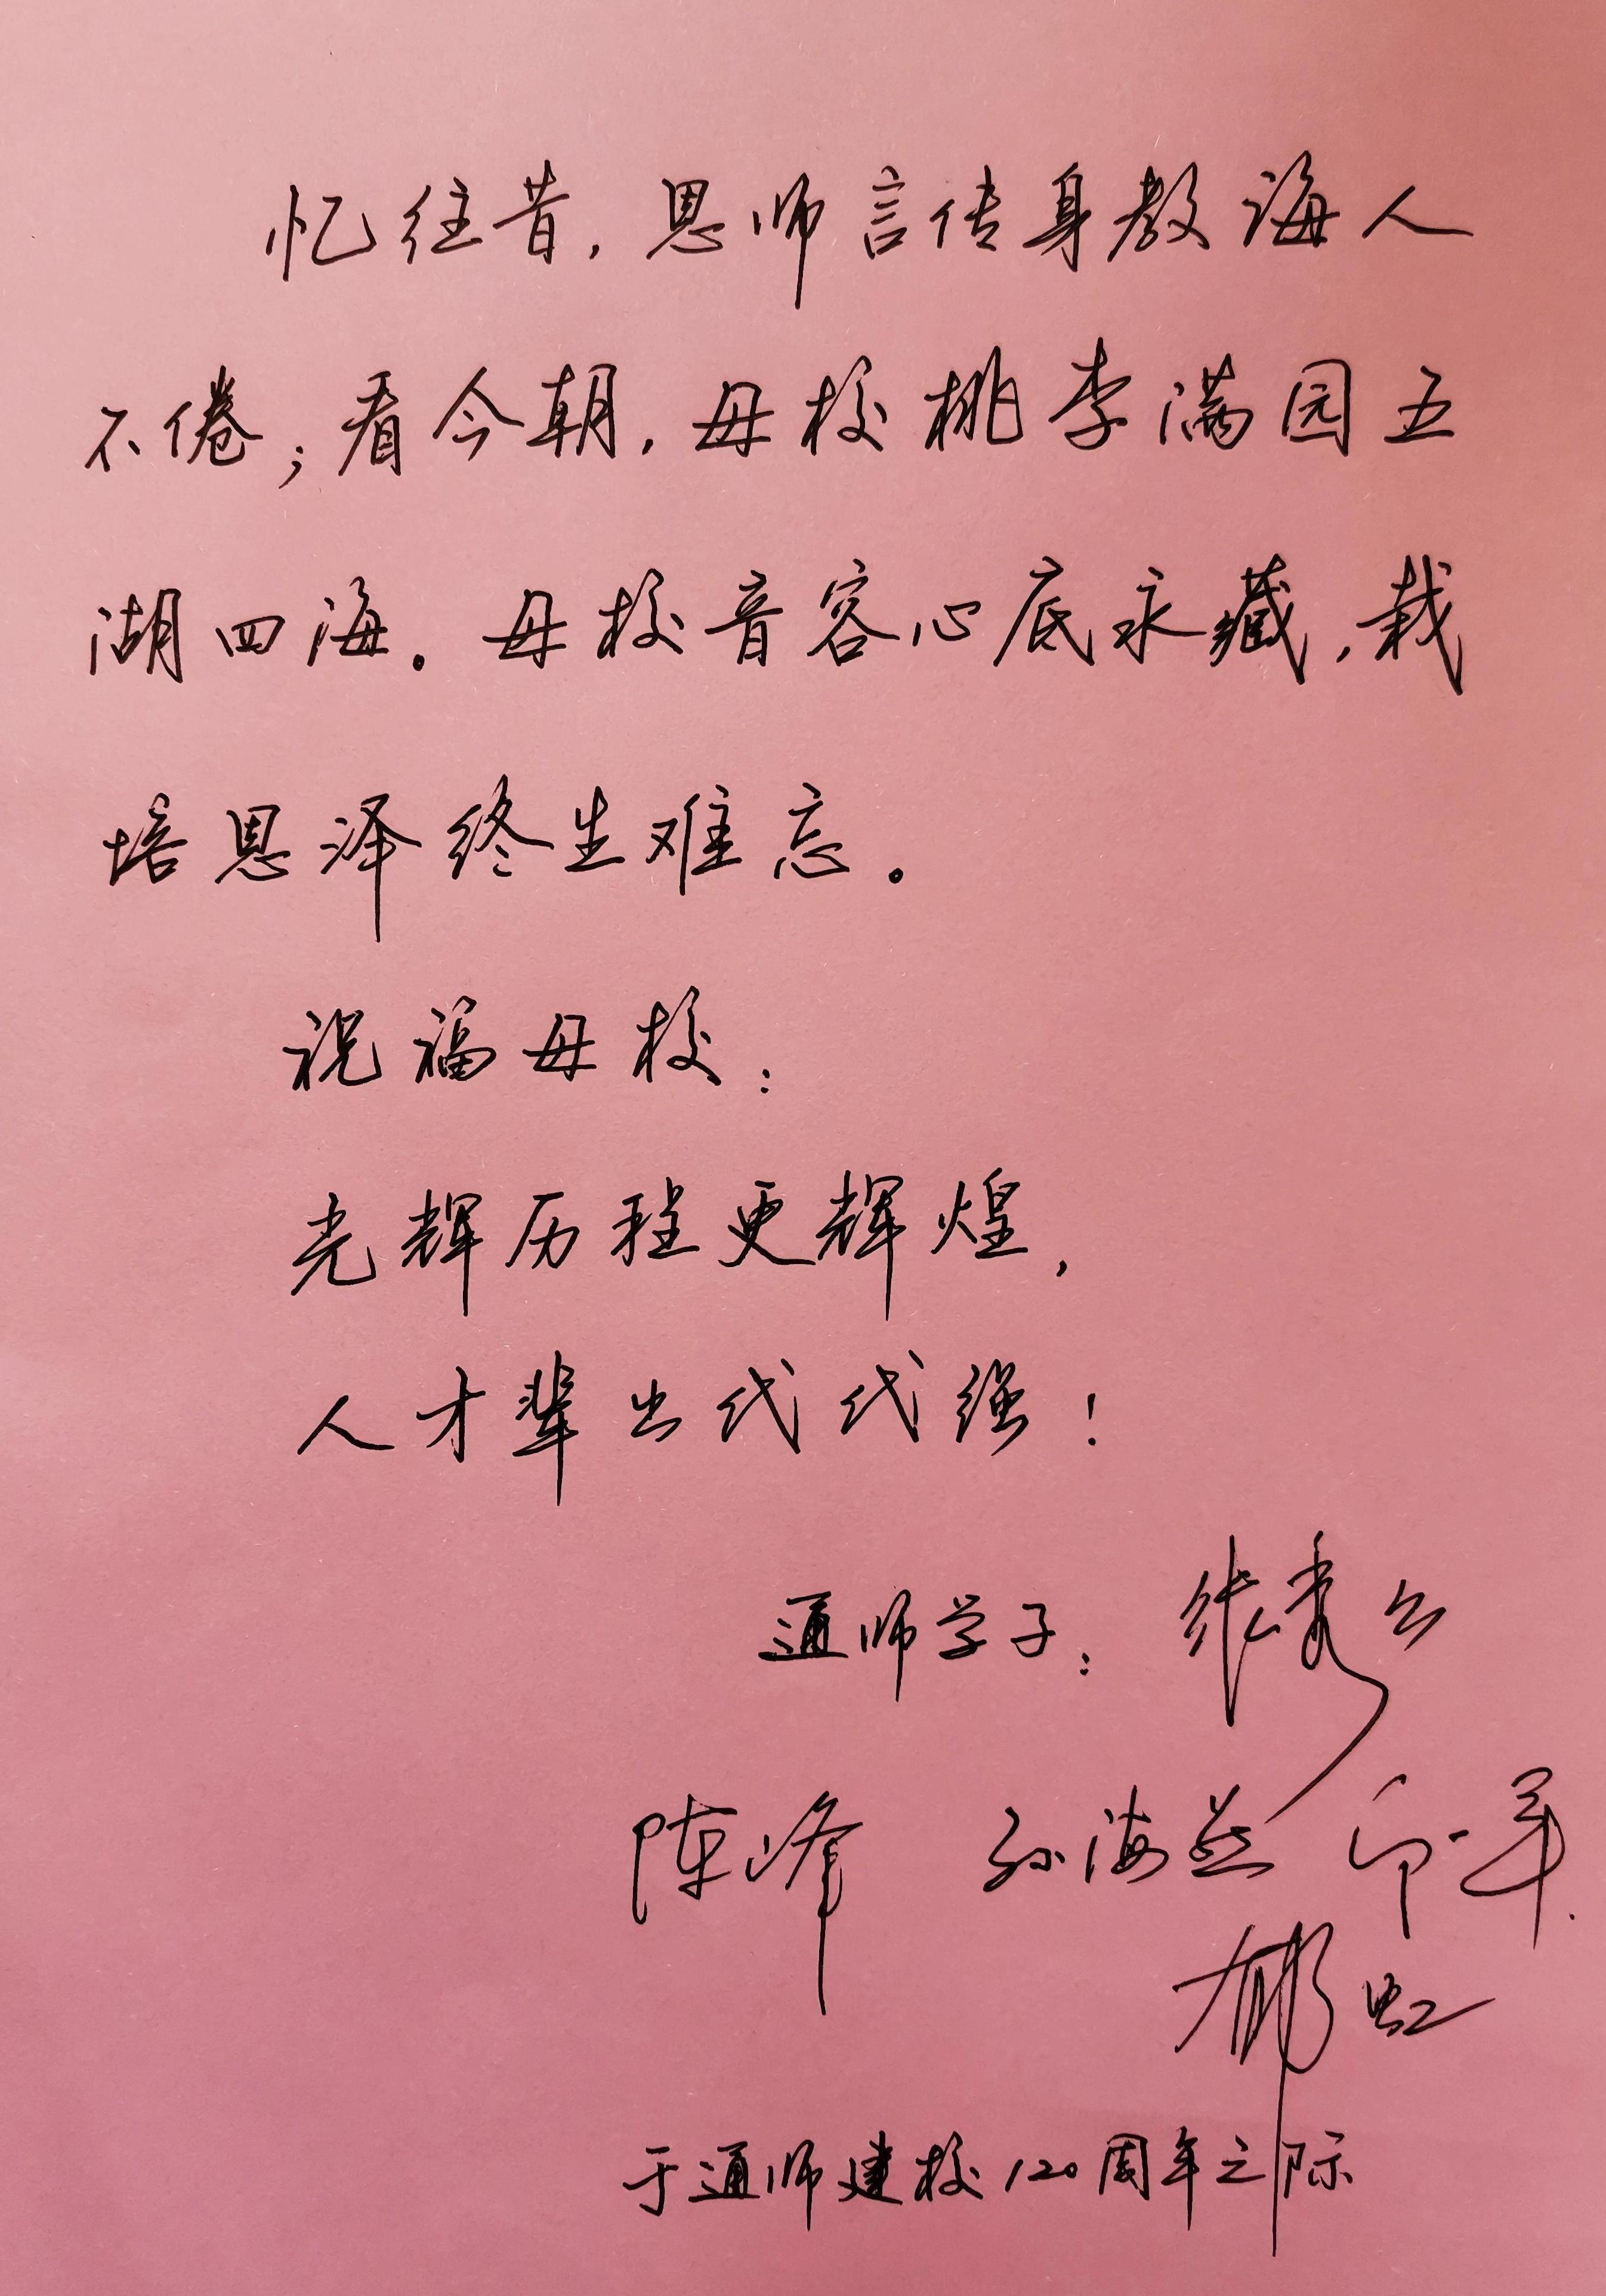 忆往昔，恩师言传身教诲人
不倦；看今朝，母校桃李满园五
湖四海。母校音容心底永藏，栽
培恩泽终生难忘。
祝福母校：
光辉历程更辉煌，
人才辈出代代强！
通师学子：张秀云
陈峰 孙海燕
郁虹
于通师建校120周年之际